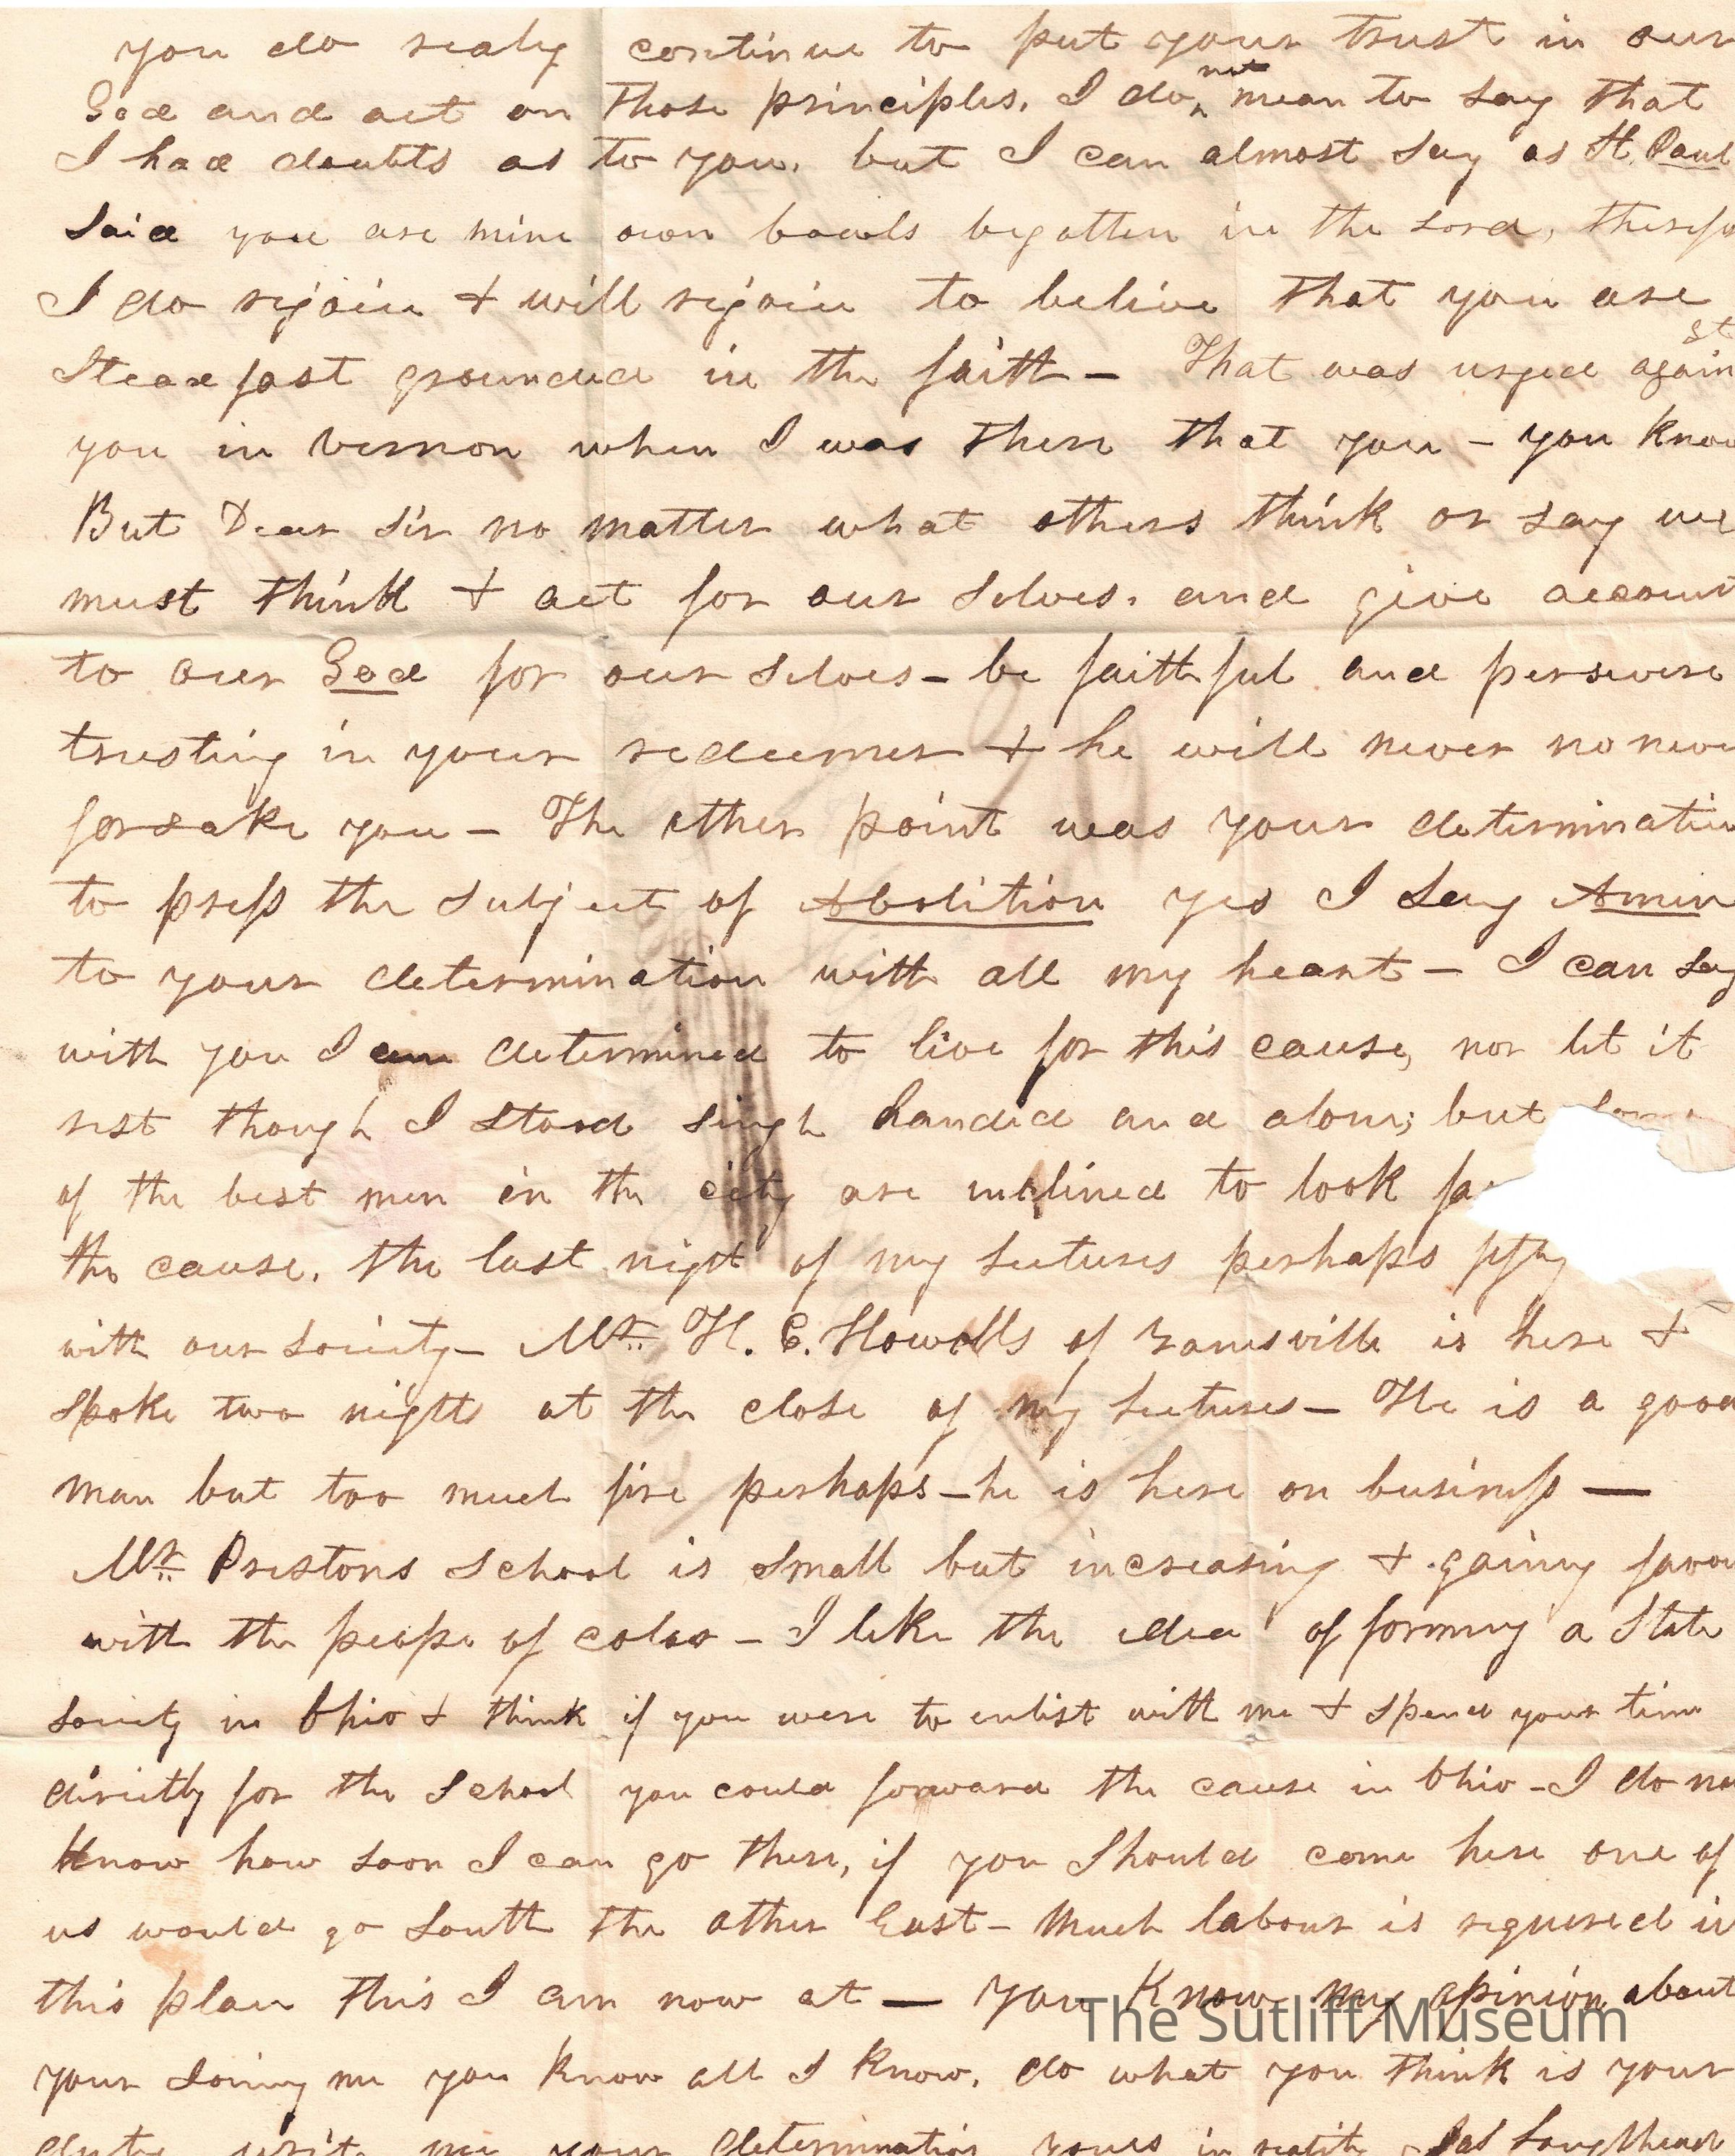 you do realy continue to put your trust in our
God and act on those principles. I do not mean to say that
I had doubts as to you, but I can almost say as St. Paul
said you are mine own bowels begotten in the Lord, therefo
I do rejoice & will rejoice to belive that you are
steadfast grounded in the faith - That was urged against
you in Vernon when I was there that you - you know
But Dear Sir no matter what others think or say we
must think & act for our selves. and give account
to our God for our selves - be faithful and persevere
trusting in your redeemer & he will never no never
forsake you - The other point was your determination
to press the subject of Abolition yes I say Amen
to your determination with all my heart - I can say
with you I am determined to live for this cause, nor let it
rest though I stood single handed and alone; but some
of the best men in the city are inclined to look fa
the cause. the last night of my lectures perhaps fifty
with our society - Mr. H. C. Howells of Zanesville is here &
spoke two nights at the close of my lectures - He is a good
man but too much fire perhaps - he is here on business -
Mr. Prestons School is small but increasing & gaining favour
with the peope of color - I like the idea of forming a State
society in Ohio & think if you were to enlist with me & spend your time
directly for the School you could forward the cause in Ohio - I do not
know how soon I can go there, if you should come here one of
us would go South the other East - Much labour is required in
this plan this I am now at - You know my opinion about
your joining me you know all I know. do what you think is your
duty write me your determination yours in
The Sutliff Museum